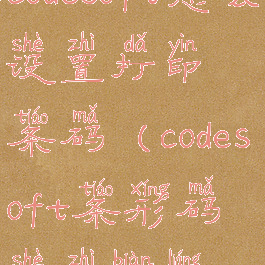 shè zhì dǎ yìn
设置打印
tiáo mǎ
条码（codes
tiáo xíng mǎ
oft条形码
shè zhì biàn